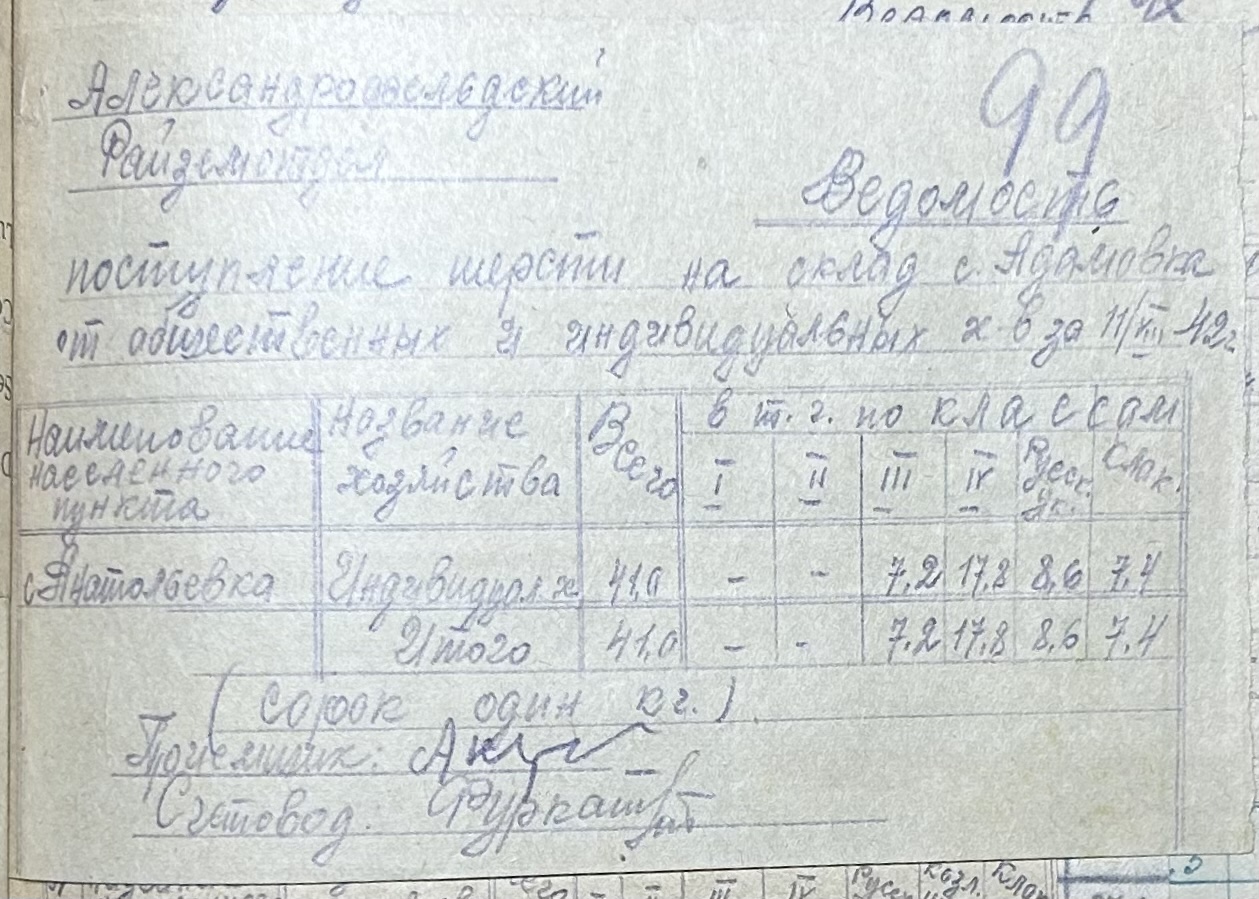 99
Александрофельдский
Райземотдел
Ведомость
поступление шерсти на склад с. Адамовка
от общественных и индивидуальных х-в за 11/XII 42г.
Наименование населенного пункта | Название хозяйства | Всего | в т. г. по классам
I | II | III | IV | Русск. ук. | Клак.
с. Анатольевка | Индивидуал. х | 41,0 | - | - | 7,2 | 17,8 | 8,6 | 7,4
Итого | 41,0 | - | - | 7,2 | 17,8 | 8,6 | 7,4
(сорок один кг.)
Приемщик:
Счетовод:
III IV